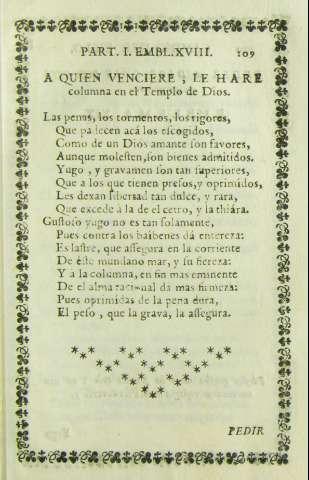 PART. I. EMBL. XVIII. 109
A QUIEN VENCIERE, LE HARE
columna en el Templo de Dios.
Las penas, los tormentos, los rigores,
Que padecen acá los escogidos,
Como de un Dios amante son favores,
Aunque molesten, son bienes admitidos.
Yugo, y gravamen son tan superiores,
Que a los que tienen presos, y oprimidos,
Les dexan libertad tan dulce, y rara,
Que excede à la de el cetro, y la thiára.
Gustoso yugo no es tan solamente,
Pues contra los baibenes dá entereza:
Es lastre, que assegura en la corriente
De este mundano mar, y su fiereza:
Y a la columna, en fin mas eminente
De el alma racional da mas firmeza:
Pues oprimidas de la pena dura,
El peso, que la grava, la assegura.
PEDIR